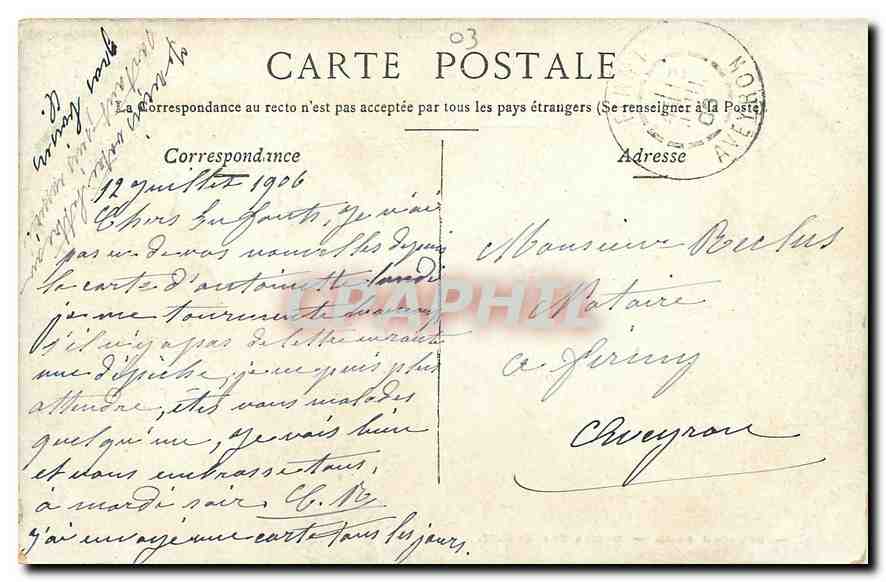 03
CARTE POSTALE
La Correspondance au recto n'est pas acceptée par tous les pays étrangers (Se renseigner à la Poste)
Correspondance
12 Juillet 1906
Chers Enfants, je n'ai
pas eu de vos nouvelles depuis
la carte d'antoinette lundi
je me tourmente
s'il n'y a pas de lettre
une dépêche, je ne puis plus
attendre, êtes vous malades
quelqu'un, je vais bien
et vous embrasse tous,
à mardi soir C. R
j'ai envoyé une carte tous les jours.
Adresse
Monsieur Reclus
Notaire
a firmy
Aveyron
AVEYRON
06
CPAPHIL